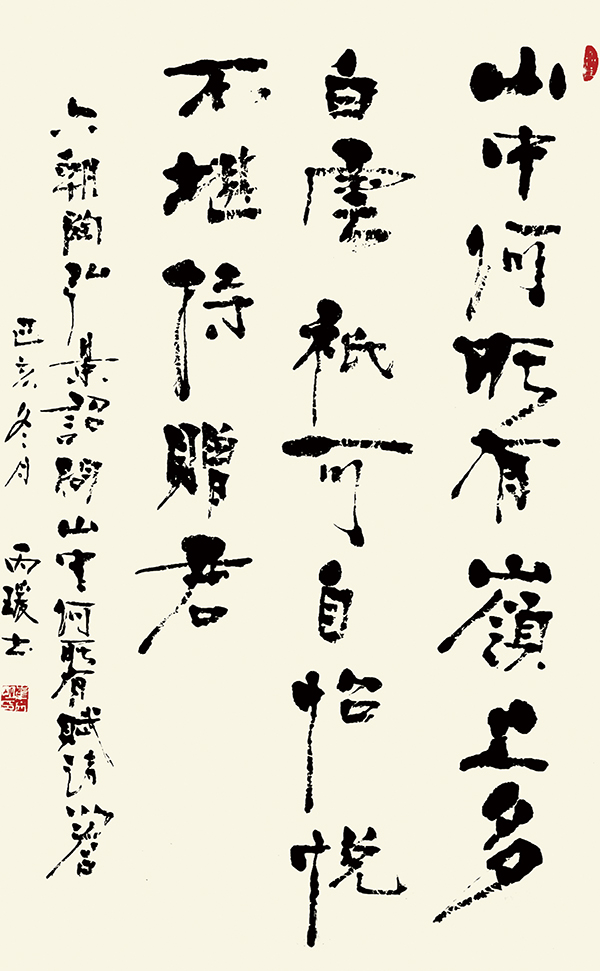 山中何所有嶺上多
白雲祇可自怡悦
不堪持贈君
六朝陶弘景詔問山中何所有賦詩以答
己亥冬月 丙瑗书